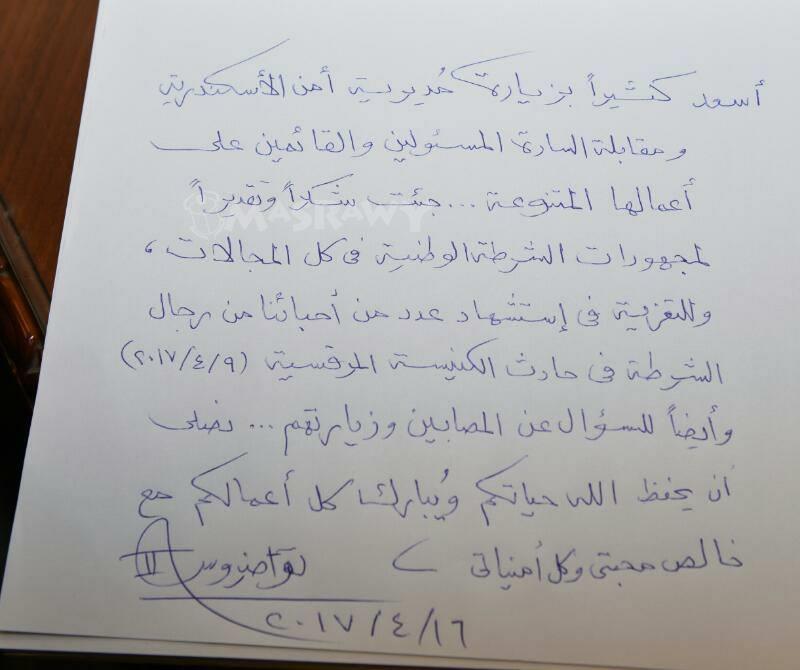 أسعد كثيراً بزيارة مُديرية أمن الأسكندرية
ومقابلة السادة المسئولين والقائمين على
أعمالها المتنوعة ... جئت شكراً وتقديراً
MASRAWY
لمجهودات الشرطة الوطنية فى كل المجالات،
وللتعزية فى إستشهاد عدد من أحبائنا من رجال
الشرطة فى حادث الكنيسة المرقسية (٢٠١٧/٤/٩)
وأيضاً للسؤال عن المصابين وزيارتهم ... نصلى
أن يحفظ الله حياتكم ويُبارك كل أعمالكم مع
خالص محبتى وكل أمنياتى تواضروس II
٢٠١٧/٤/١٦